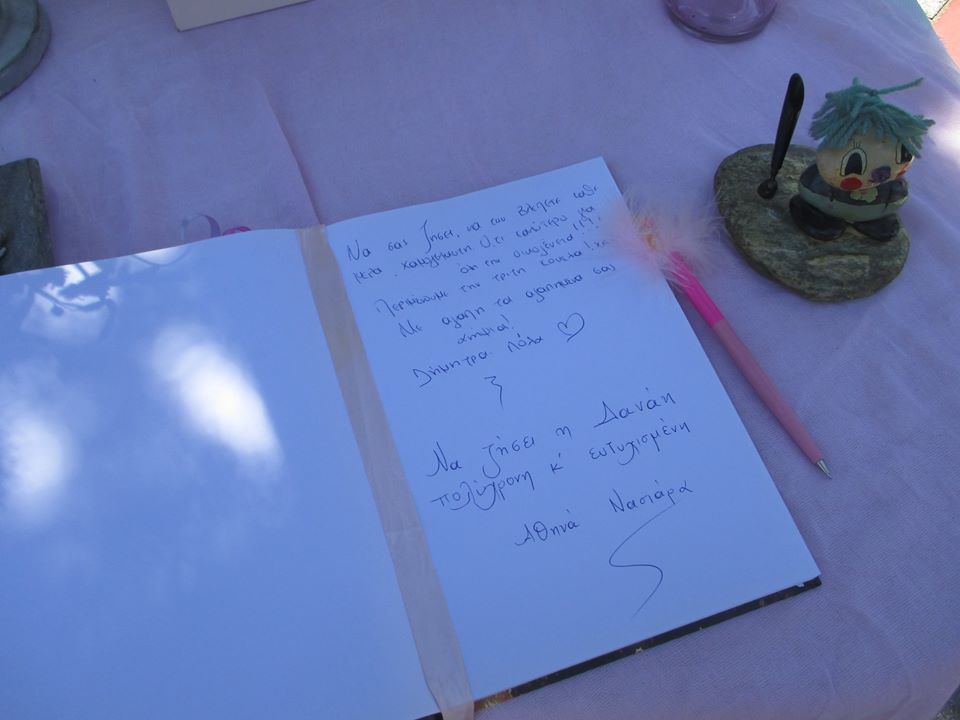 Να σας ζήσει, να την βλέπετε κάθε
μέρα χαμογελαστή Ό,τι καλύτερο για
όλη την οικογένεια !!!
Περιμένουμε την τρίτη κουκλα
Με αγάπη τα αγαπημένα σας
ανήψια!
Δήμητρα Λόλα
Να ζήσει η Δανάη
πολύχρονη κ' ευτυχισμένη
Αθηνά Νασιάρα